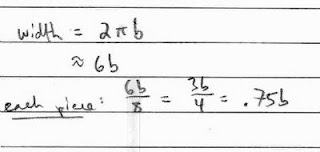 width = 2πb
≈ 6b
each piece: 6b/8 = 3b/4 = .75b